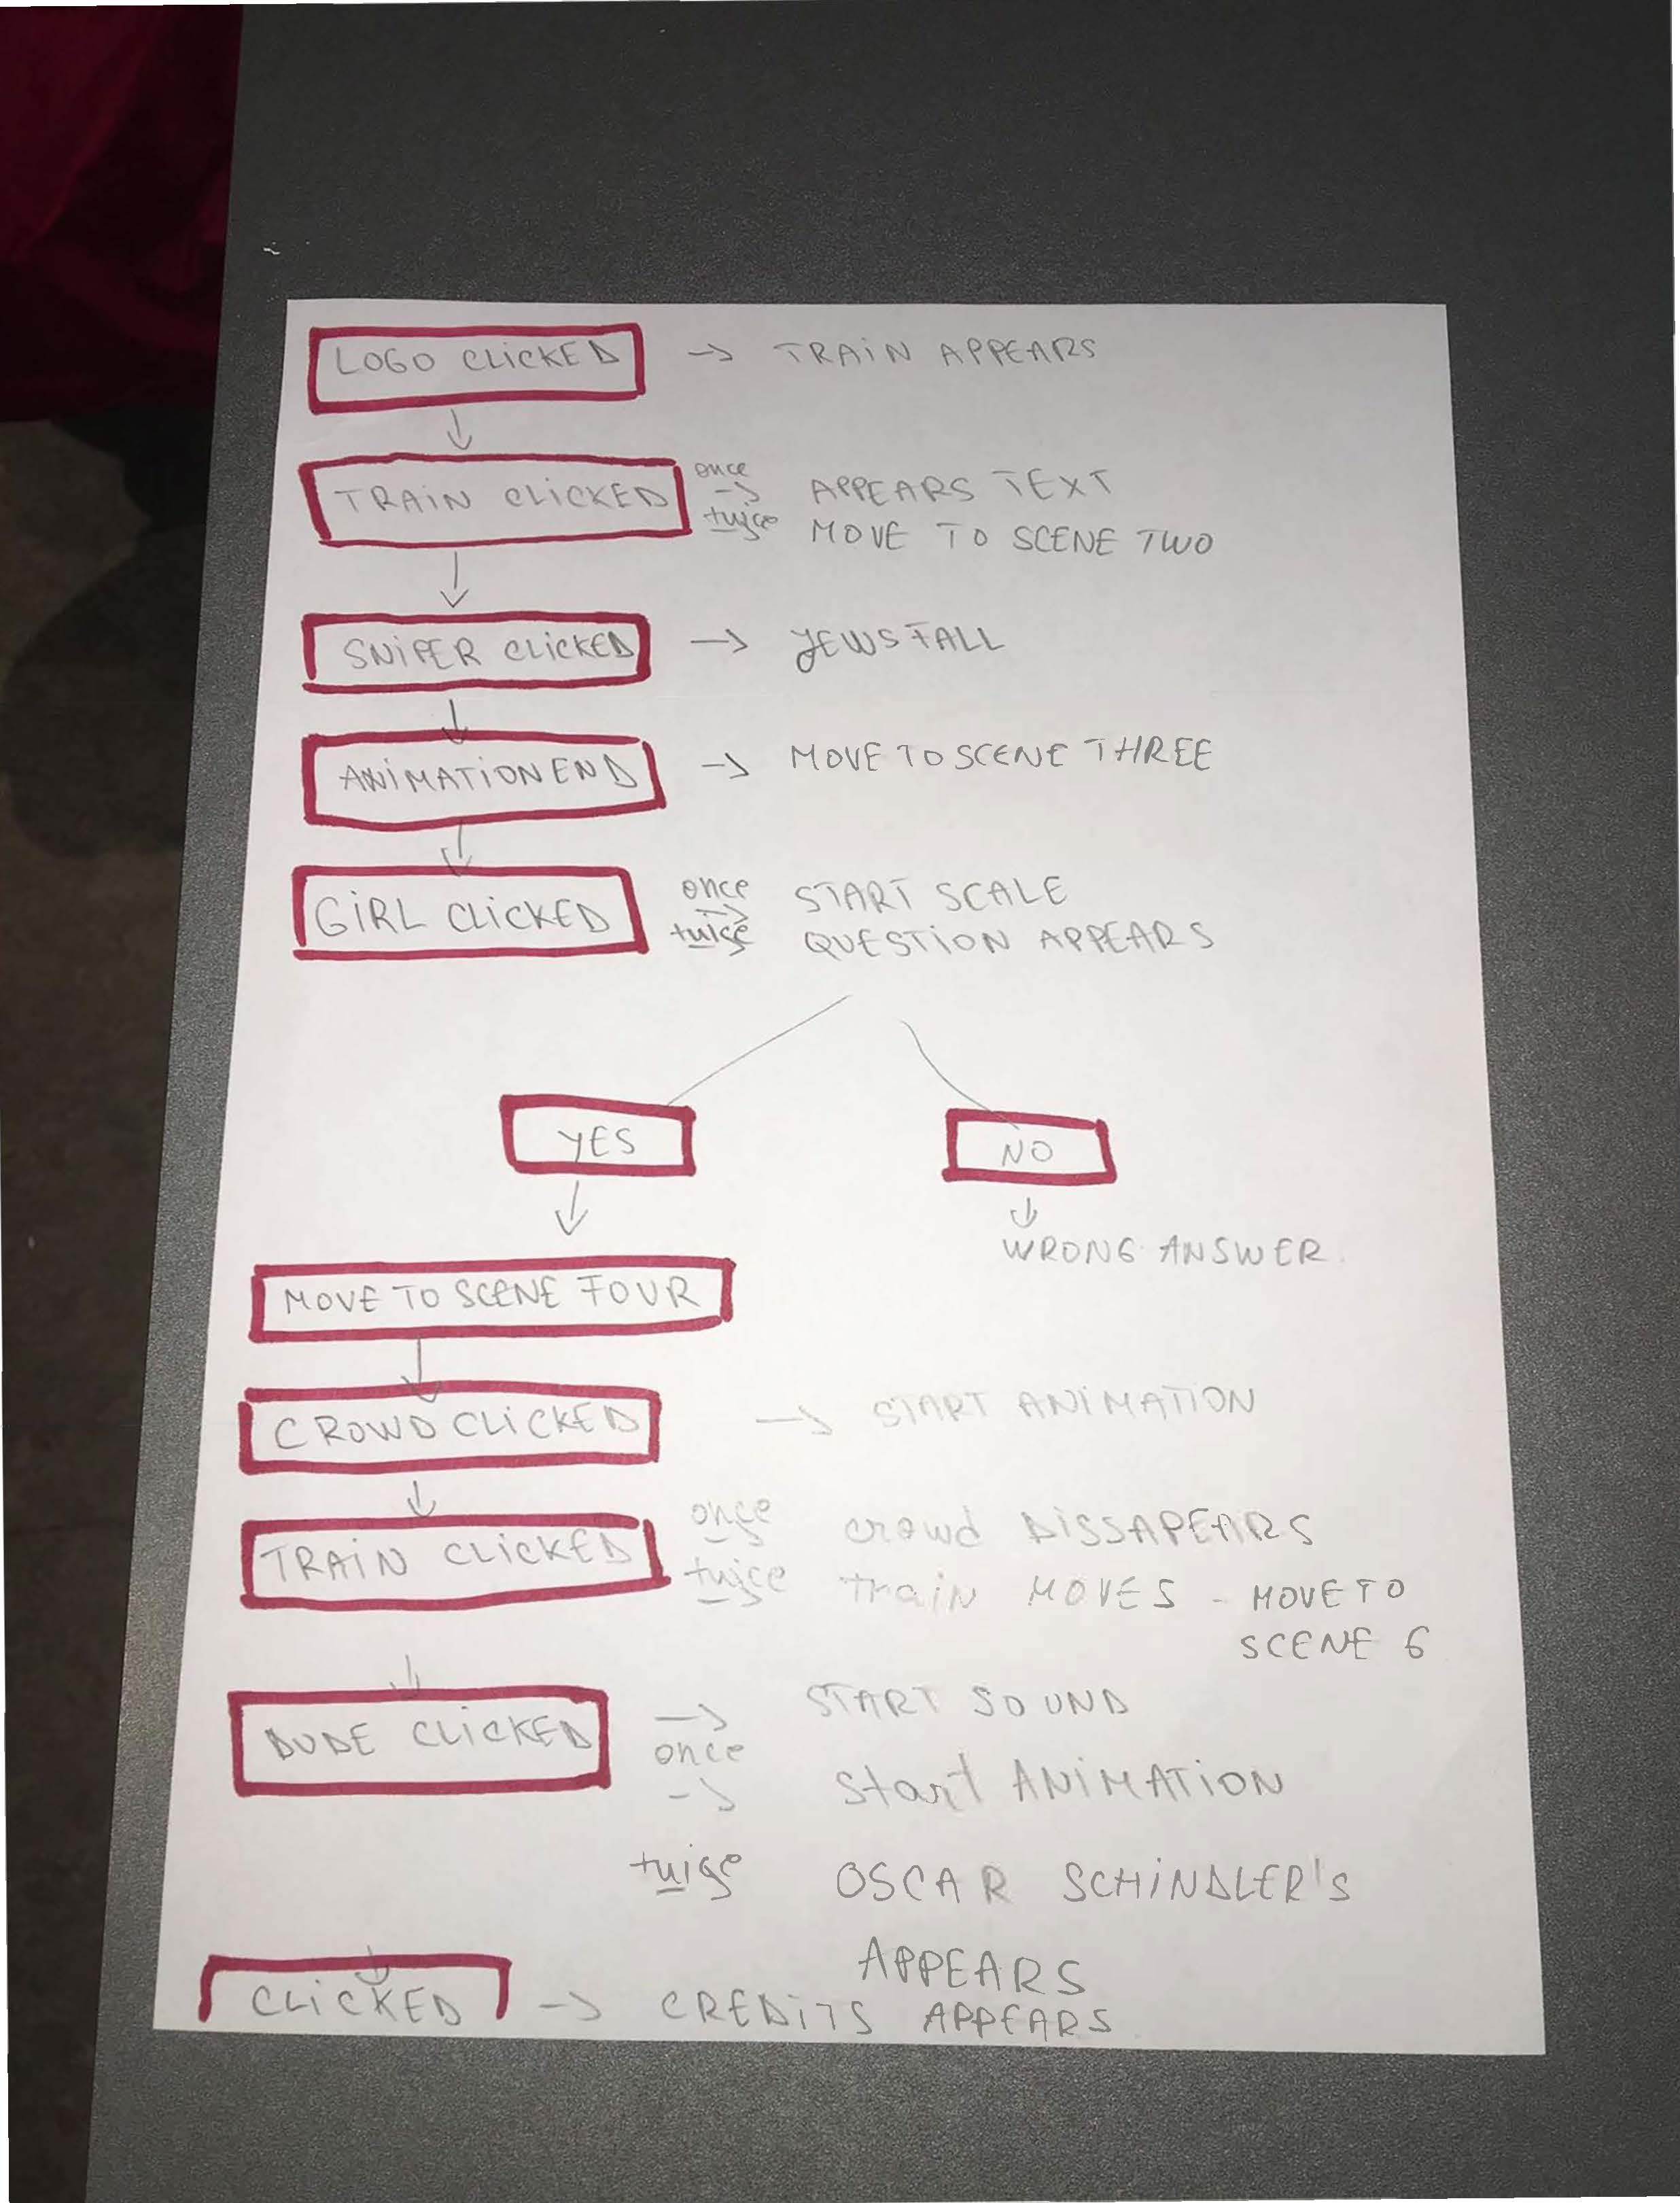 LOGO CLICKED → TRAIN APPEARS
↓
TRAIN CLICKED once → APPEARS TEXT
twice MOVE TO SCENE TWO
↓
SNIPER CLICKED → JEWS FALL
↓
ANIMATION END → MOVE TO SCENE THREE
↓
GIRL CLICKED once → START SCALE
twice QUESTION APPEARS
YES NO
↓ ↓
WRONG ANSWER.
MOVE TO SCENE FOUR
↓
CROWD CLICKED → START ANIMATION
↓
TRAIN CLICKED once → crowd DISSAPEARS
twice train MOVES - MOVE TO
SCENE 6
↓
DUDE CLICKED → START SOUND
once
→ Start ANIMATION
twice OSCAR SCHINDLER's
APPEARS
↓
CLICKED → CREDITS APPEARS